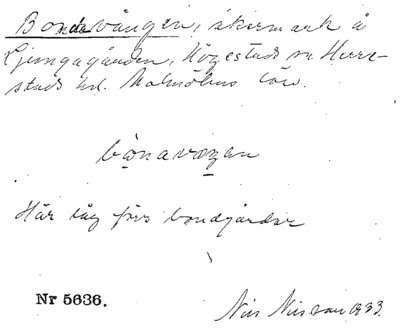 Bondavången, åkermark å
Ljungagården, Högestads sn. Herre-
stads hd. Malmöhus län.
bonavaŋen
Här låg förr bondgårdar
Nr 5636.
Nils Nilsson 1933.